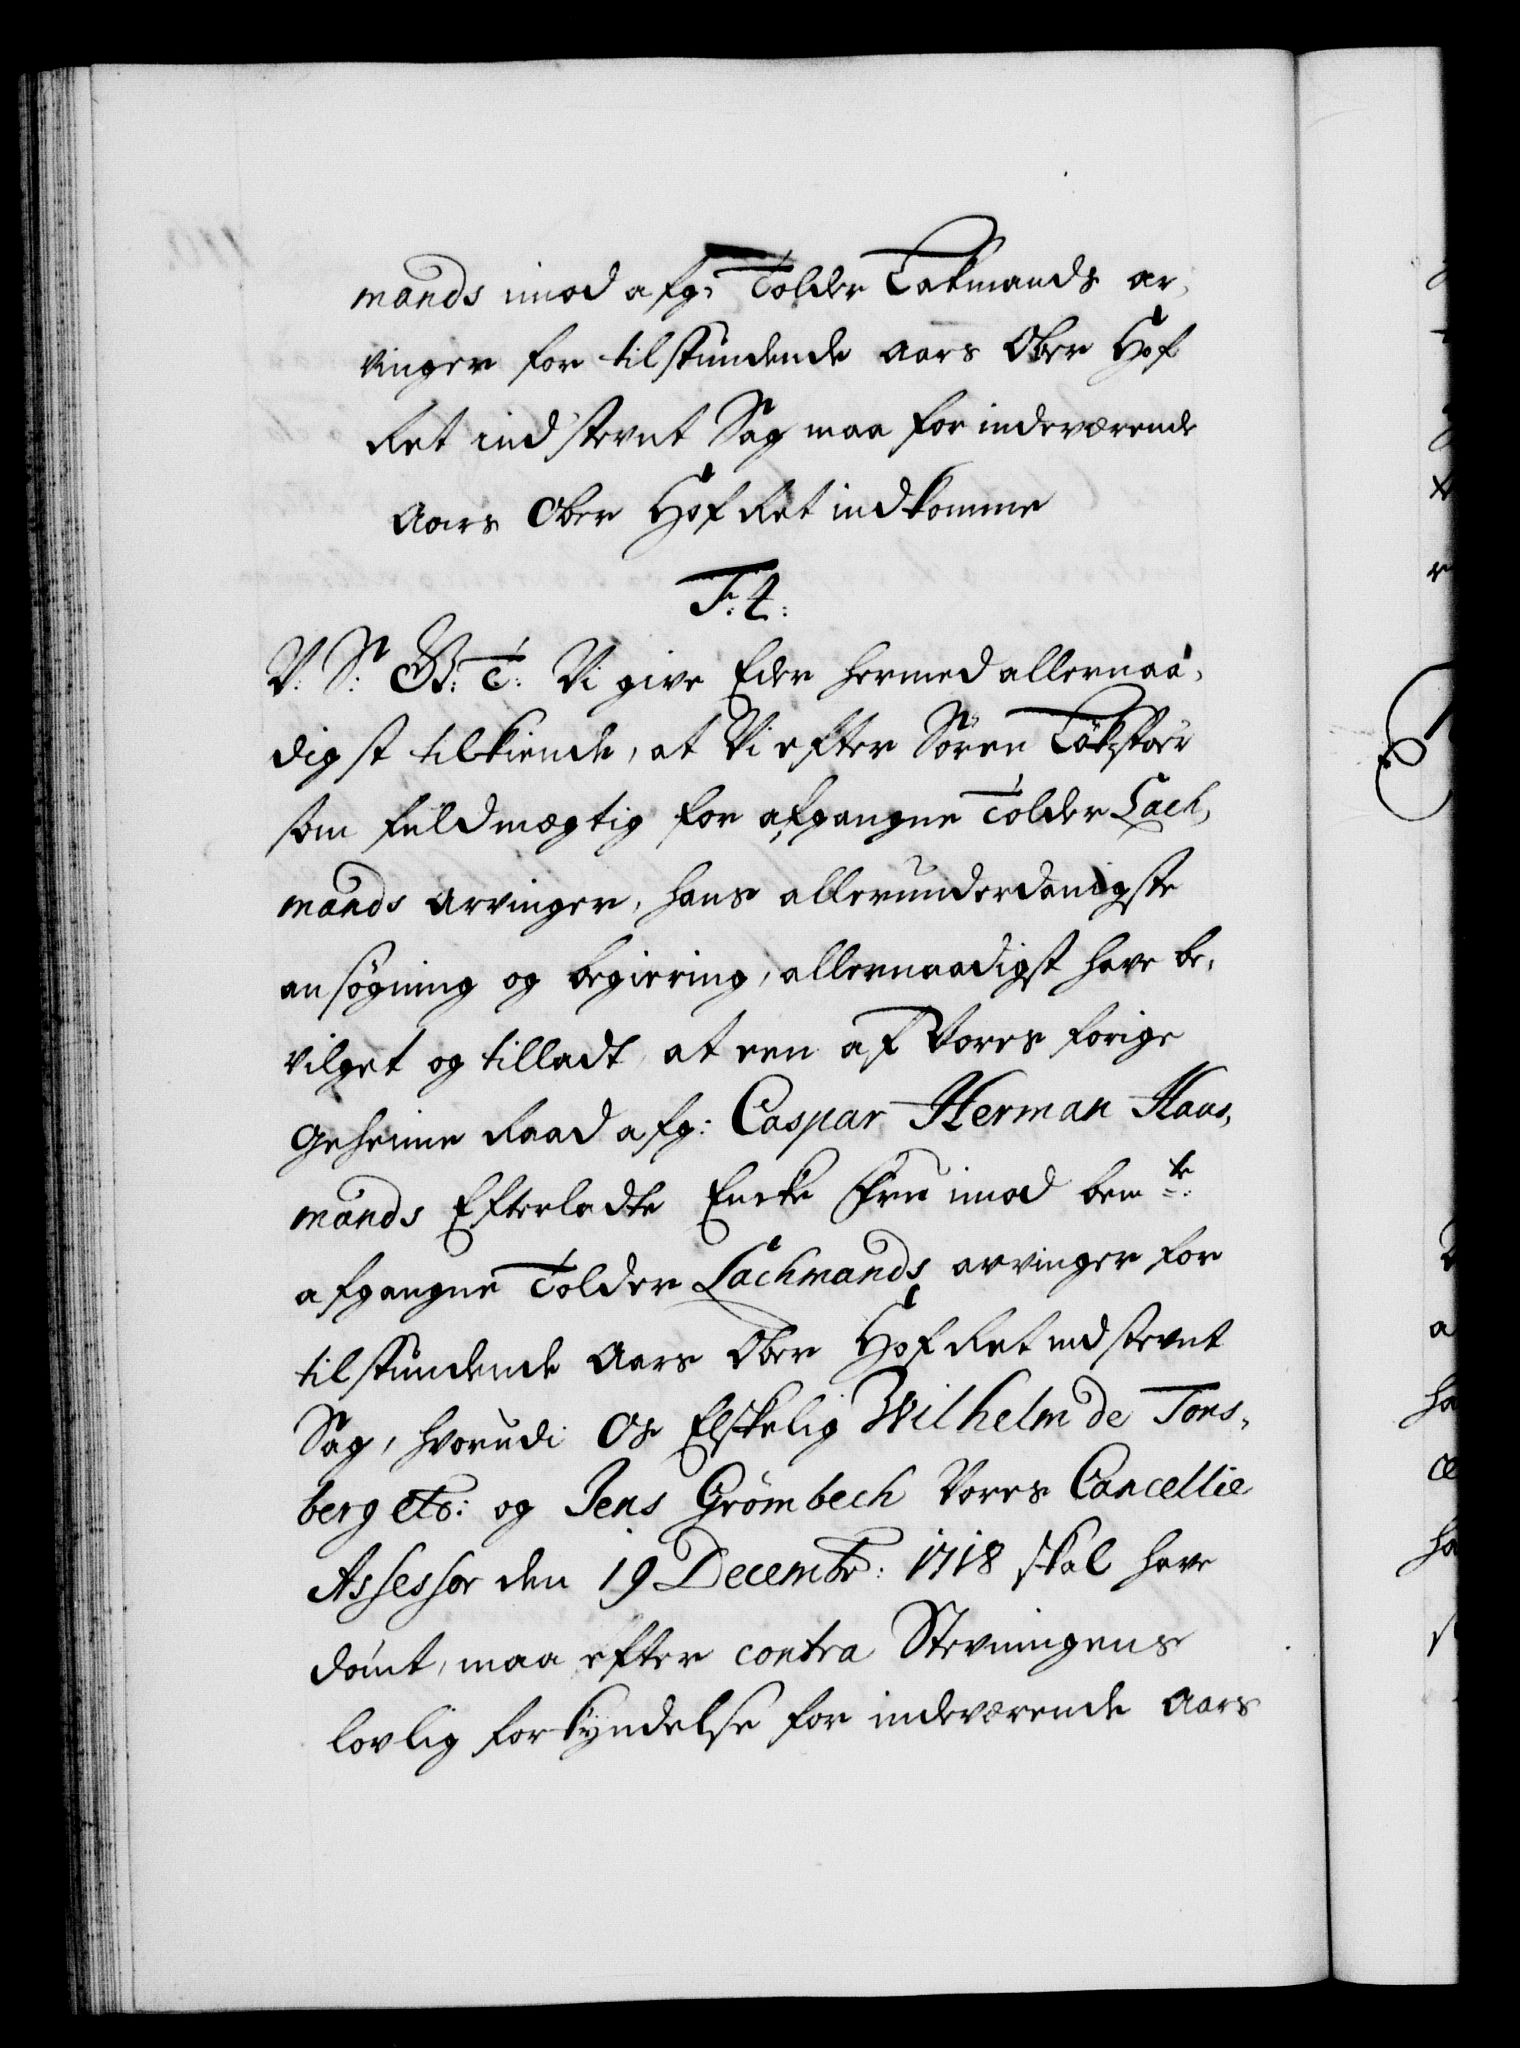 mands imod afg: Tolder Lakmands ar,
vinger for tilstundende Aars Ober Hof
Ret indstevnt Sag maa for indeværende
Aars Ober Hof Ret indkomme
F: 4:
V: S: G: T: Vi give Eder hermed allernaa,
digst tilkiende, at Vi efter Sören Lökstör
som fuldmægtig for afgangne Tolder Lach,
mands Arvinger, hans allerunderdanigste
ansøgning og begiering, allernaadigst have be,
vilget og tilladt, at een af Vores forige
Geheime Raad afg: Caspar Herman Haus,
mands Efterladte Encke Fru imod bemte:
afgangne Tolder Lachmands arvinger for
tilstundende Aars Ober Hof Ret indstevnt
Sag, hvorudi Os Elskelig Wilhelm de Tons,
berg etc: og Jens Grömbech Vores Cancellie
Assessor den 19 Decembr: 1718 skal have
dömt, maa efter contra Stevningens
lovlig forkyndelse for indeværende Aars